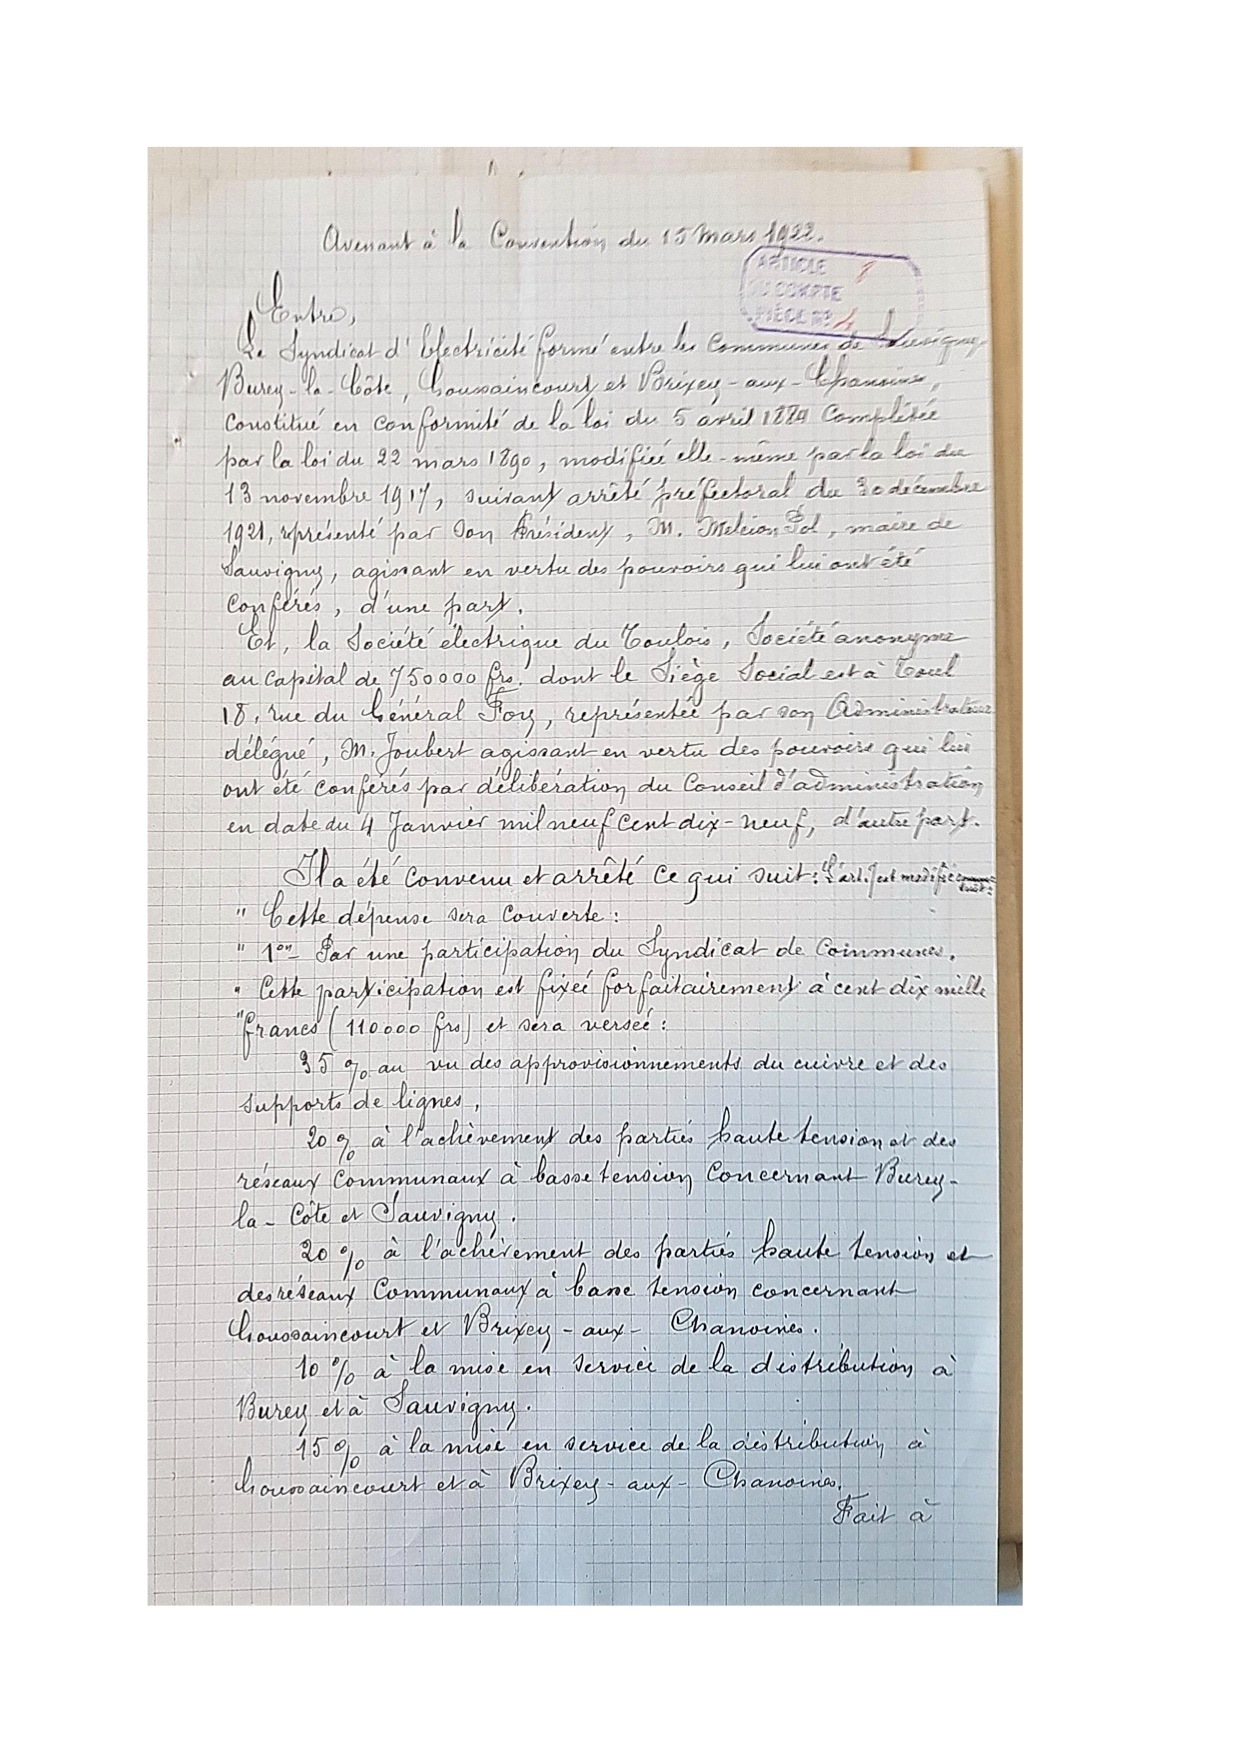 Avenant à la Convention du 15 Mars 1922.
ARTICLE 8
DU COMPTE
PIÈCE N° 4
Entre,
Le Syndicat d'Electricité formé entre les Communes de Sauvigny,
Burey-la-Côte, Goussaincourt et Brixey-aux-Chanoines,
constitué en conformité de la loi du 5 avril 1884 complétée
par la loi du 22 mars 1890, modifiée elle-même par la loi du
13 novembre 1917, suivant arrêté préfectoral du 30 décembre
1921, représenté par son Président, M. Melcion Pol, maire de
Sauvigny, agissant en vertu des pouvoirs qui lui ont été
conférés, d'une part.
Et, la Société électrique du Toulois, Société anonyme
au capital de 750000 frs. dont le Siège Social est à Toul
18, rue du Général Foy, représentée par son Administrateur
délégué, M. Joubert agissant en vertu des pouvoirs qui lui
ont été conférés par délibération du Conseil d'administration
en date du 4 Janvier mil neuf cent dix-neuf, d'autre part.
Il a été convenu et arrêté ce qui suit: L'art. 7 est modifié comme
suit:
" Cette dépense sera couverte :
" 1ent Par une participation du Syndicat de Communes.
" Cette participation est fixée forfaitairement à cent dix mille
" francs (110000 frs) et sera versée :
35 % au vu des approvisionnements du cuivre et des
supports de lignes,
20 % à l'achèvement des parties haute tension et des
réseaux Communaux à basse tension concernant Burey-
la-Côte et Sauvigny.
20 % à l'achèvement des parties haute tension et
des réseaux Communaux à basse tension concernant
Goussaincourt et Brixey-aux-Chanoines.
10 % à la mise en service de la distribution à
Burey et à Sauvigny.
15 % à la mise en service de la distribution à
Goussaincourt et à Brixey-aux-Chanoines.
Fait à